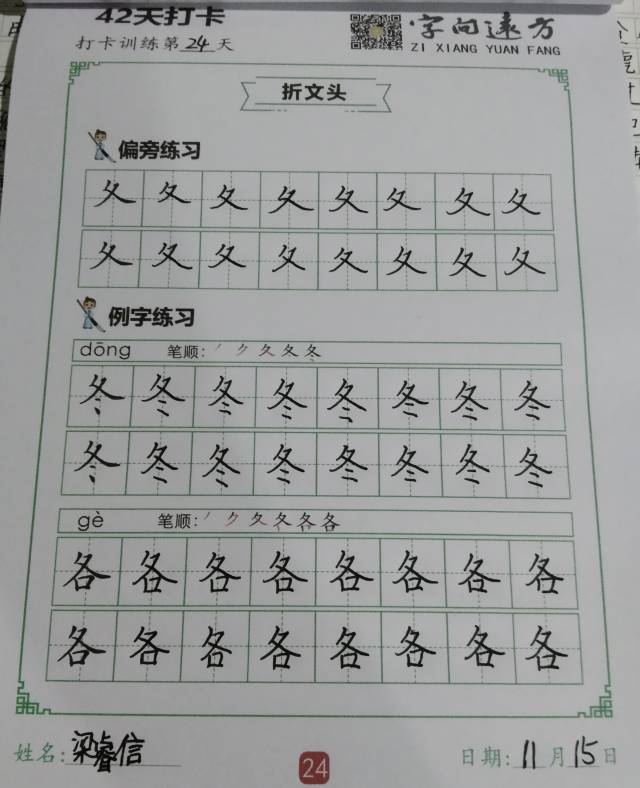 42天打卡
打卡训练第24天
字向远方
ZI XIANG YUAN FANG
折文头
偏旁练习
夂夂夂夂夂夂夂夂
夂夂夂夂夂夂夂夂
例字练习
dōng 笔顺：丿 ク 夂 冬 冬
冬冬冬冬冬冬冬冬
冬冬冬冬冬冬冬冬
gè 笔顺：丿 ク 夂 夂 各 各
各各各各各各各各
各各各各各各各各
姓名：梁睿信
24
日期：11月15日